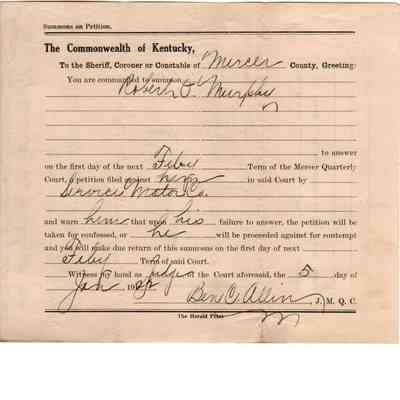 Summons on Petition.
The Commonwealth of Kentucky,
To the Sheriff, Coroner or Constable of Mercer County, Greeting:
You are commanded to summon
Robert O. Murphy
to answer
on the first day of the next Feby Term of the Mercer Quarterly
Court, a petition filed against him in said Court by
Service Motor Co.
and warn him that upon his failure to answer, the petition will be
taken for confessed, or he will be proceeded against for contempt
and you will make due return of this summons on the first day of next
Feby Term of said Court.
Witness my hand as Judge of the Court aforesaid, the 5 day of
Jan 1922 Ben C. Allin, J. M. Q. C.
The Herald Print